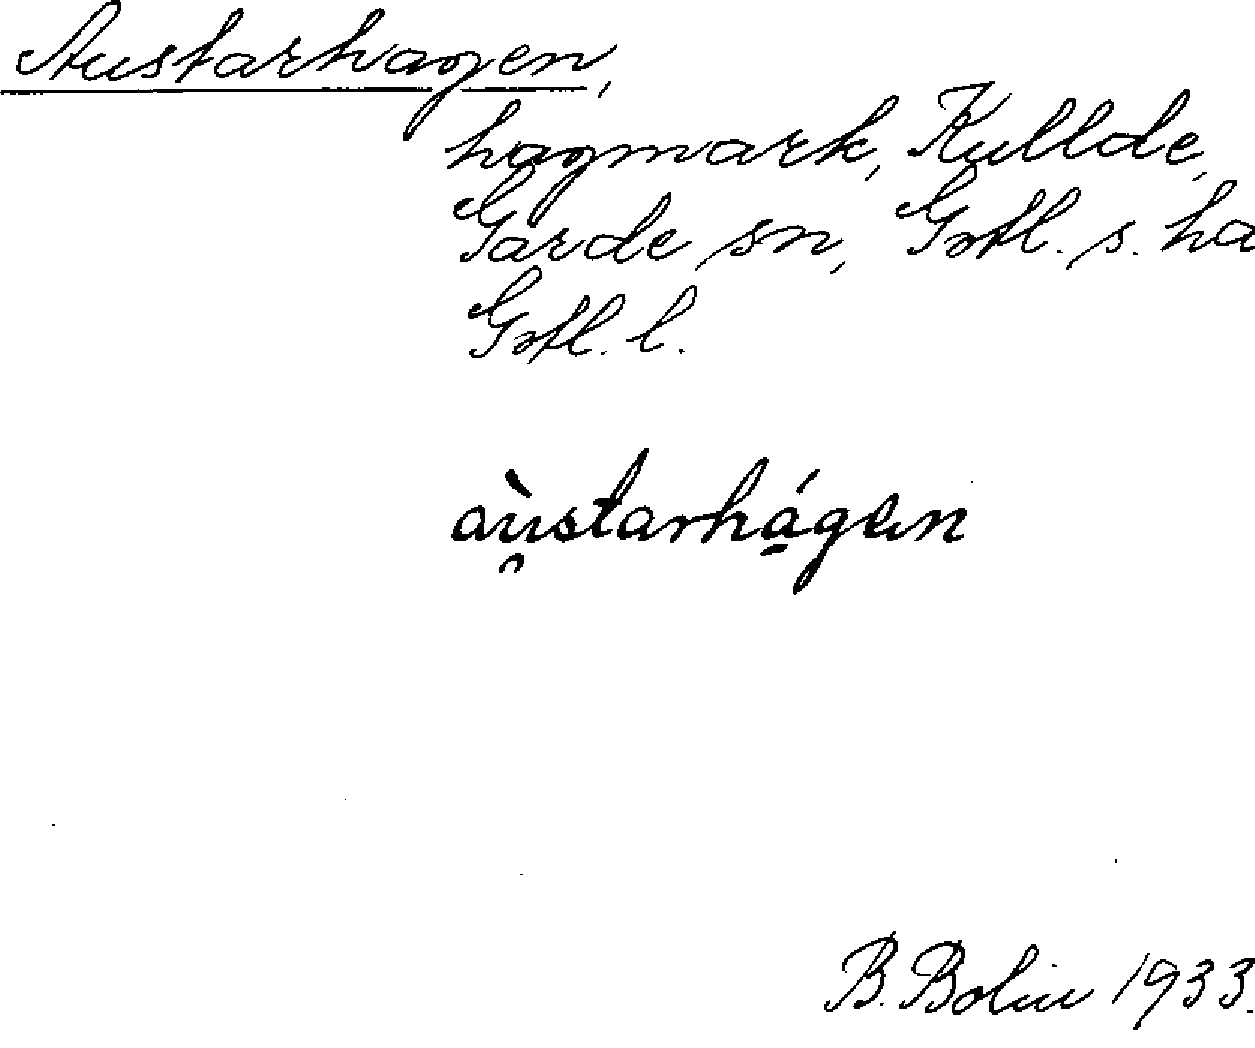 Austarhagen,
hagmark, Kullde,
Garde sn, Gotl. s. ha
Gotl. l.
aù̯starhá̱gen
B. Bolin 1933.